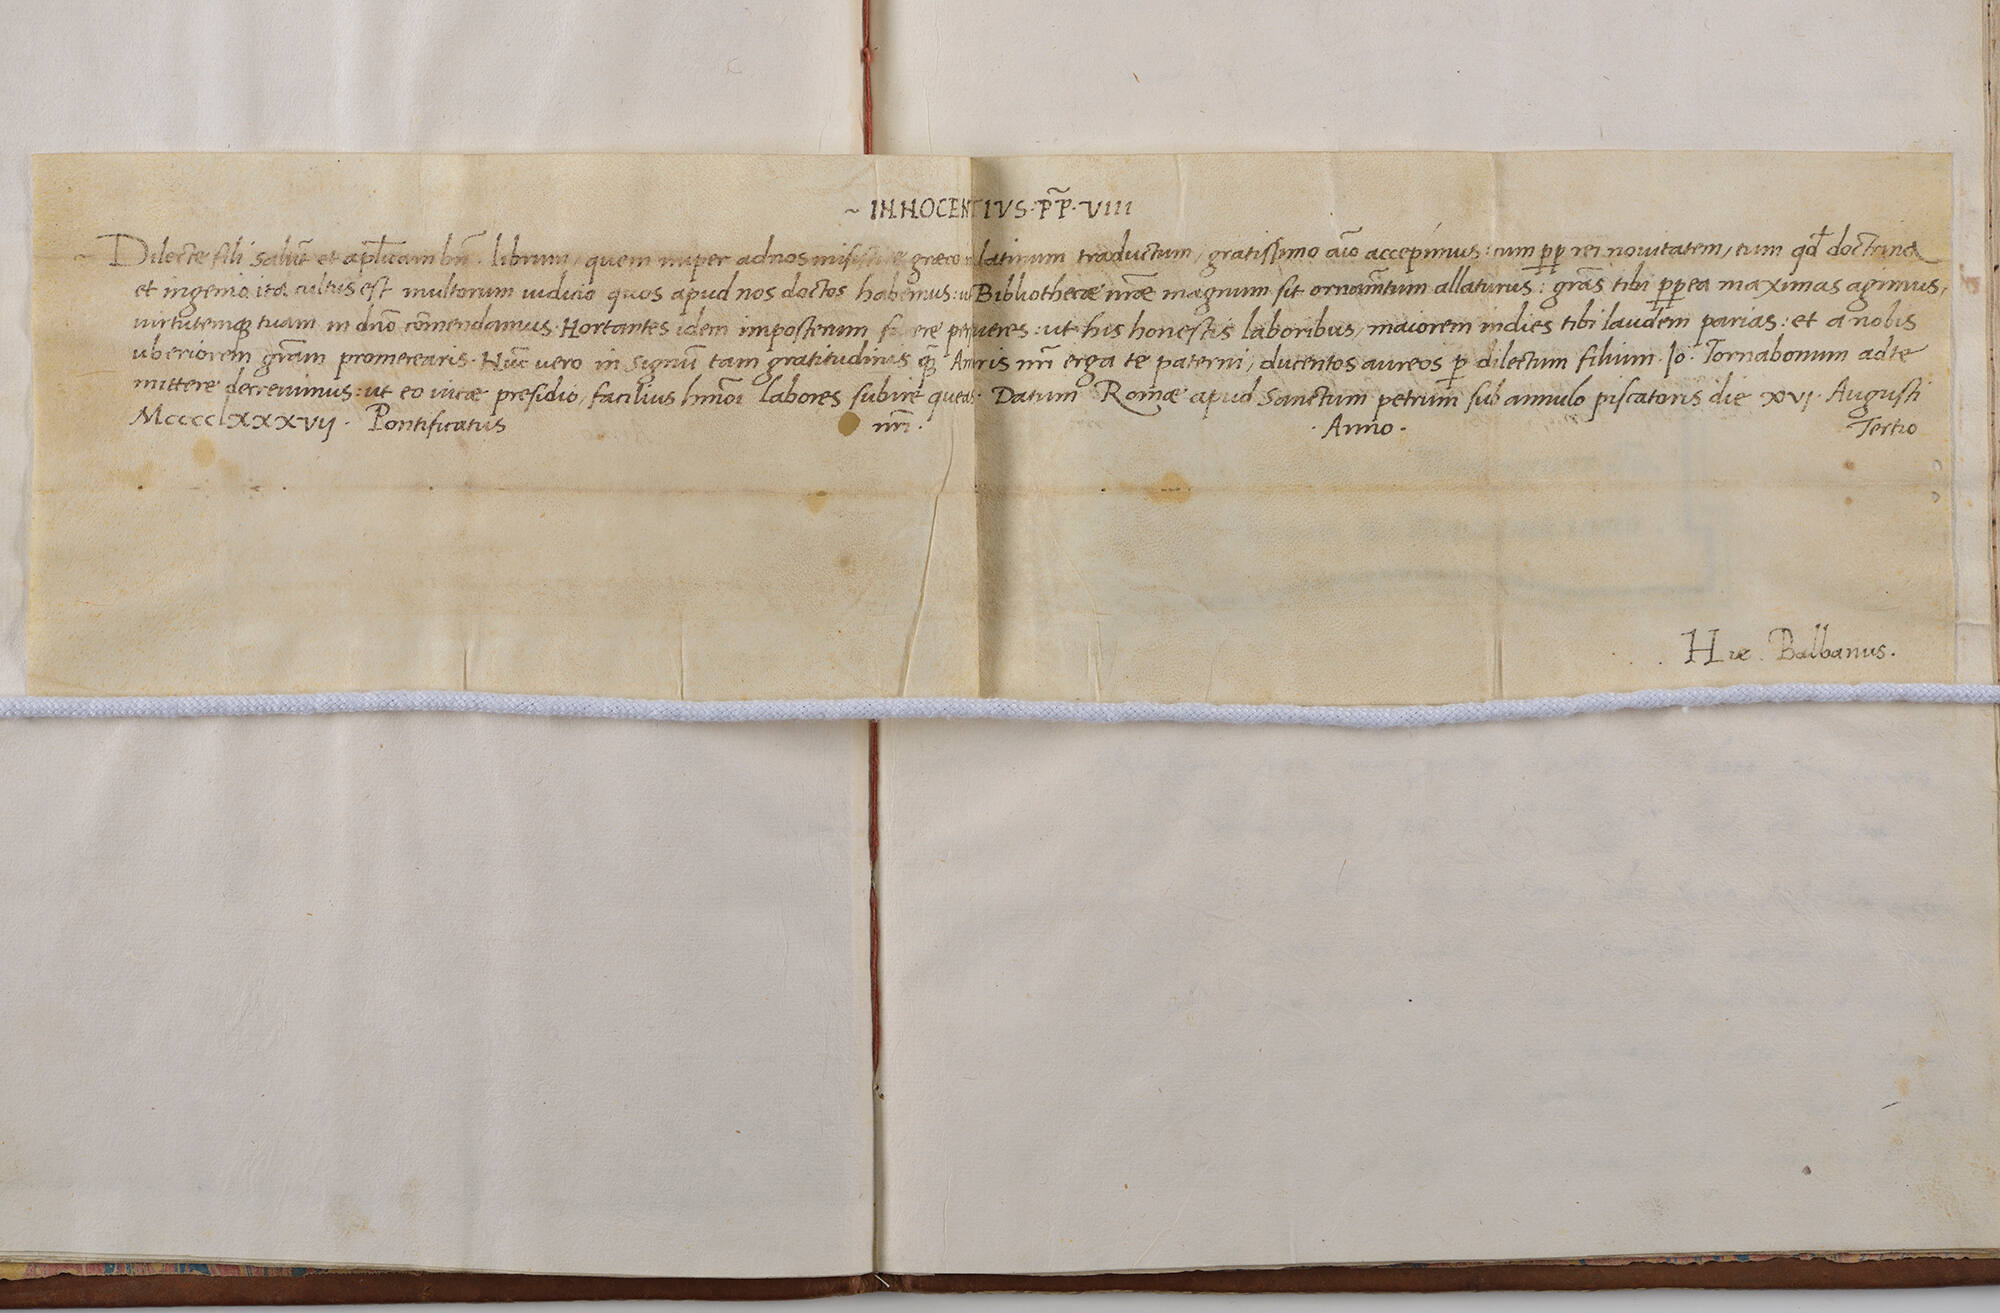 ~ INNOCENTIVS · PP̃ · VIII
Dilecte fili Salutē et aplicam bn̄. librum, quem nuper ad nos misisti e græco latinum traductum, gratissimo aīo accepimus: cum pp̄ rei nouitatem, tum qđ doctrina
et ingenio ita cultus est multorum iudicio quos apud nos doctos habemus: ut Bibliothecæ nr̄æ magnum sit ornam̄tum allaturus: grās tibi pp̄ ea maximas agimus,
uirtutemq; tuam in dn̄o cōmendamus. Hortantes idem imposterum perseueres: ut his honestis laboribus, maiorem indies tibi laudem parias: et a nobis
uberiorem grām promerearis. Nūc uero in signū tam gratitudinis q̄ Amoris nr̄i erga te paterni, ducentos aureos p̄ dilectum filium. Jo. Tornabonum ad te
mittere decreuimus: ut eo uitæ presidio, facilius hmōi labores subire queas. Datum Romæ apud Sanctum petrum sub annulo piscatoris die xvj. Augusti
MccccLxxxvij. Pontificatus nr̄i. Anno. Tertio
Hie. Balbanus.